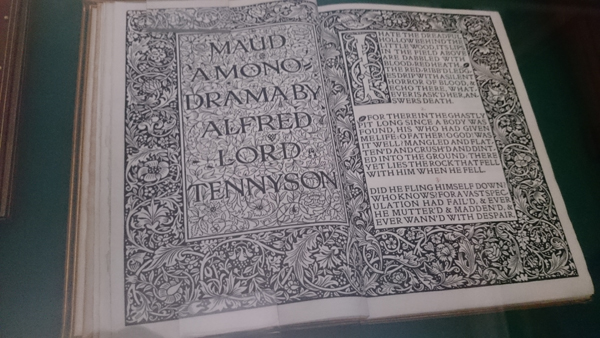 MAUD
A MONO-
DRAMA BY
ALFRED
LORD
TENNYSON
I HATE THE DREADFUL
HOLLOW BEHIND THE
LITTLE WOOD, ITS LIPS
IN THE FIELD ABOVE
ARE DABBLED WITH
BLOOD-RED HEATH,
THE RED-RIBB'D LEDG-
ES DRIP WITH A SILENT
HORROR OF BLOOD, &
ECHO THERE, WHAT-
EVER IS ASK'D HER, AN-
SWERS DEATH.
2
FOR THERE IN THE GHASTLY
PIT LONG SINCE A BODY WAS
FOUND, HIS WHO HAD GIVEN
ME LIFE—O FATHER! O GOD! WAS
IT WELL? MANGLED AND FLAT-
TEN'D AND CRUSH'D AND DINT-
ED INTO THE GROUND: THERE
YET LIES THE ROCK THAT FELL
WITH HIM WHEN HE FELL.
3
DID HE FLING HIMSELF DOWN?
WHO KNOWS? FOR A VAST SPEC-
ULATION HAD FAIL'D, & EVER
HE MUTTER'D & MADDEN'D, &
EVER WANN'D WITH DESPAIR,